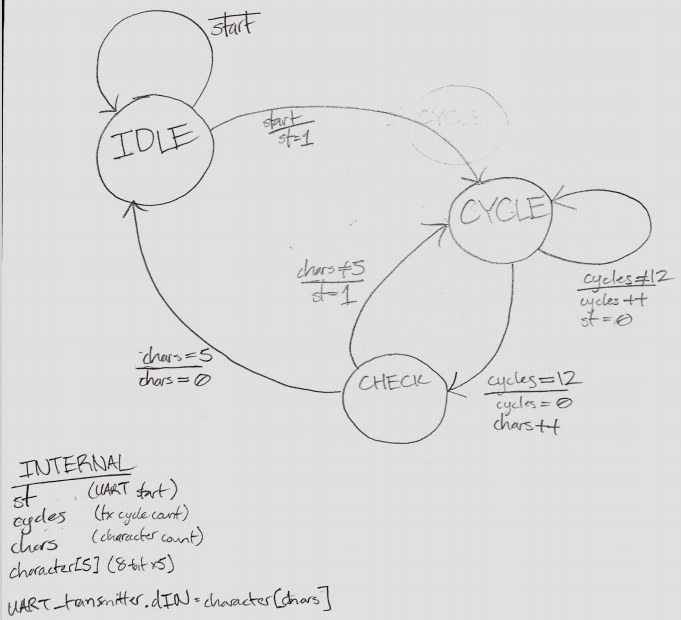 start
IDLE
start
st=1
CYCLE
CYCLE
chars≠5
st=1
cycles≠12
cycles++
st=0
chars=5
chars=0
CHECK
cycles=12
cycles=0
chars++
INTERNAL
st (UART start)
cycles (tx cycle count)
chars (character count)
character[5] (8-bit x5)
UART_transmitter.dIN=character[chars]